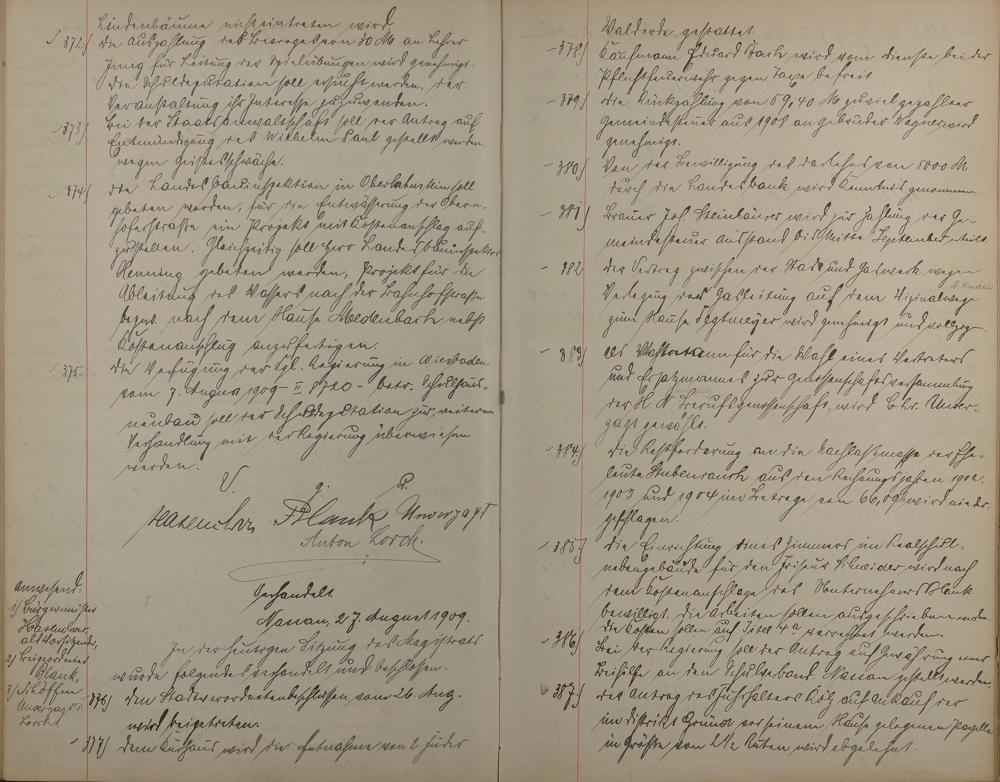 Lindenbäume nicht eintreten wird
372.) Die Auszahlung des Betrages von 30 M an Lehrer
Jung für Leitung der Spielübungen wird genehmigt.
Die Schuldeputation soll ersucht werden, der
Veranstaltung ihr Interesse zuzuwenden.
373) Bei der Staatsanwaltschaft soll der Antrag auf
Entmündigung des Wilhelm Paul gestellt werden
wegen Geistesschwäche.
374) Die Landesbauinspektion in Oberlahnstein soll
gebeten werden, für die Entwässerung der Obern-
hoferstraße ein Projekt mit Kostenanschlag auf-
zustellen. Gleichzeitig soll Herr Landesbauinspektor
Henning gebeten werden, Projekt für die
Ableitung des Wassers nach der Bahnhofstraße
bezw. nach dem Hause Medenbach nebst
Kostenanschlag anzufertigen.
375. Die Verfügung der Kgl. Regierung in Wiesbaden
vom 7. August 1909 II betr. Schulhaus-
neubau soll der Schuldeputation zur weiteren
Verhandlung mit der Regierung überwiesen
werden.
V. g. u.
Hasenclever Blank Unverzagt
Anton Lorch.
Anwesend:
1) Bürgermeister
Hasenclever
als Vorsitzender,
2) Beigeordneter
Blank,
3) Schöffen
Unverzagt u.
Lorch
Verhandelt
Nassau, 27. August 1909.
In der heutigen Sitzung des Magistrats
wurde folgendes verhandelt und beschlossen.
376) Den Stadtverordnetenbeschlüssen vom 26 Aug.
wird beigetreten.
377) Dem Kurhaus wird die Entnahme von 2 Fuder
Walderde gestattet
378) Kaufmann Eduard wird vom Dienste bei der
Pflichtfeuerwehr gegen Taxe befreit.
379.) Die Rückzahlung von 59,40 M zuviel gezahlter
Gemeindesteuer aus 1908 an Gebrüder Wagner wird
genehmigt.
380) Von der Bewilligung des Darlehns von 8000 M
durch die Landesbank wird Kenntnis genommen.
381) Brauer Joh Steinhäuser wird zur Zahlung der Ge-
meindesteuer Ausstand bis Mitte September erteilt.
382 Der Vertrag zwischen der Stadt und Gaswerk wegen
Verlegung der Gasleitung auf dem Vizinalwege
zum Hause Segtmeyer wird genehmigt und vollzogen
383) Als Wahlmann für die Wahl eines Vertreters
und Ersatzmannes zur Genossenschaftsversammlung
der H. N. Berufsgenossenschaft, wird Chr. Unver-
zagt gewählt.
384) Die Restforderung an die Nachlaßmasse der Ehe-
leute Stubenrauch aus den Rechnungsjahren 1902,
1903 und 1904 im Betrage von 66,09 wird nieder-
geschlagen.
385.) Die Einrichtung eines Zimmers im Realschul-
nebengebäude für den Friseur Schneider wird nach
dem Kostenanschlage des Unternehmers Blank
bewilligt. Die Arbeiten sollen ausgeschrieben werden.
Die Kosten sollen auf Titel 4a verrechnet werden.
386) Bei der Regierung soll der Antrag auf Gewährung einer
Beihilfe an den Schulverband Nassau gestellt werden.
387.) Der Antrag des Buchhalters Hölz auf Ankauf der
im Distrikt Grund vor seinem Hause gelegenen Parzelle
in Größe von 2 1/2 Ruten wird abgelehnt.